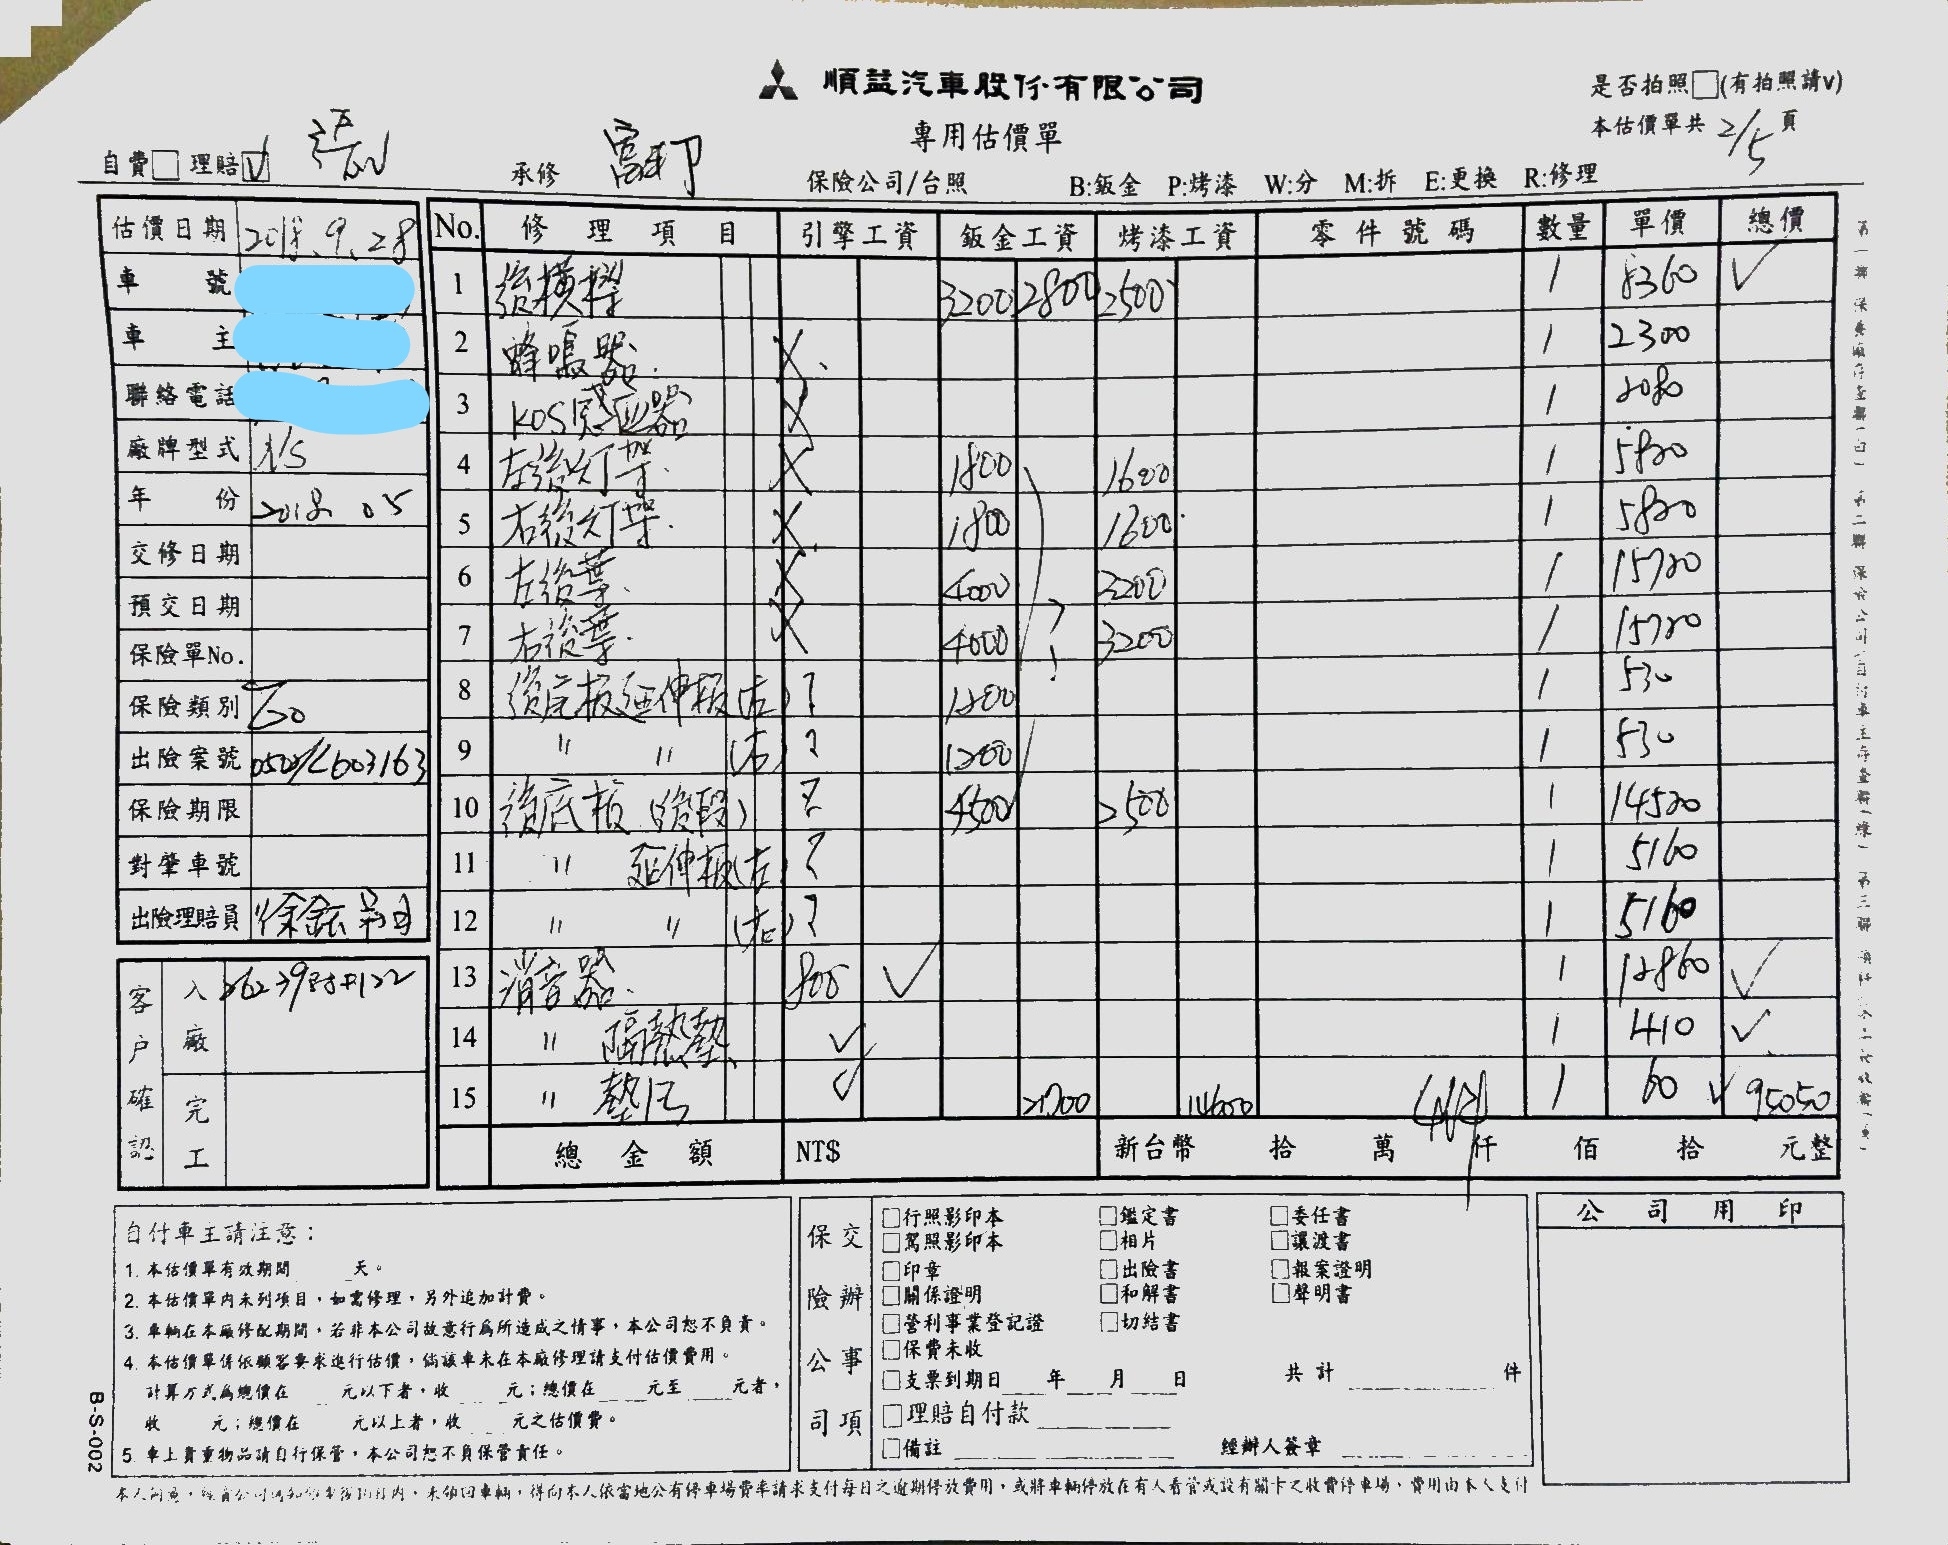 順益汽車股份有限公司
專用估價單
是否拍照□(有拍照請V)
本估價單共 2/5 頁
自費□ 理賠☑ 承修 保險公司/台照 B:鈑金 P:烤漆 W:分 M:拆 E:更換 R:修理
估價日期 2018.9.28
車號
車主
聯絡電話
廠牌型式
年份 2018 05
交修日期
預交日期
保險單No.
保險類別
出險案號
保險期限
對肇車號
出險理賠員
客戶確認
入廠
完工
No. 修理項目 引擎工資 鈑金工資 烤漆工資 零件號碼 數量 單價 總價
1 後橫樑 3200 2800 2500 1 8360 ✓
2 蜂鳴器 X 1 2300
3 KOS感應器 X 1 2080
4 左後灯架 X 1800 1600 1 5820
5 右後灯架 X 1800 1600 1 5820
6 左後葉 X 4000 3200 1 15720
7 右後葉 X 4000 3200 1 15720
8 後底板延伸板(左) ? 1200 1 530
9 〃 〃 (右) ? 1200 1 530
10 後底板(後段) ? 4500 2500 1 14520
11 〃 延伸板(左) ? 1 5160
12 〃 〃 (右) ? 1 5160
13 消音器 800 ✓ 1 12860 ✓
14 〃 隔熱墊 ✓ 1 410 ✓
15 〃 墊片 ✓ 21700 14600 1 60 ✓ 95050
總金額 NT$ 新台幣 拾 萬 仟 佰 拾 元整
自付車主請注意：
1. 本估價單有效期間 天。
2. 本估價單內未列項目，如需修理，另外追加計費。
3. 車輛在本廠修配期間，若非本公司故意行為所造成之情事，本公司恕不負責。
4. 本估價單係依顧客要求進行估價，倘該車未在本廠修理請支付估價費用。
計算方式為總價在 元以下者，收 元；總價在 元至 元者，
收 元；總價在 元以上者，收 元之估價費。
5. 車上貴重物品請自行保管，本公司恕不負保管責任。
B-S-002
保險公司
交辦事項
□行照影印本 □鑑定書 □委任書
□駕照影印本 □相片 □讓渡書
□印章 □出險書 □報案證明
□關係證明 □和解書 □聲明書
□營利事業登記證 □切結書
□保費未收
□支票到期日 年 月 日 共計 件
□理賠自付款
□備註 經辦人簽章
公司用印
未領回車輛，得向本人依當地公有停車場費率請求支付每日之逾期停放費用，或將車輛停放在有人看管或設有關卡之收費停車場，費用由本人支付